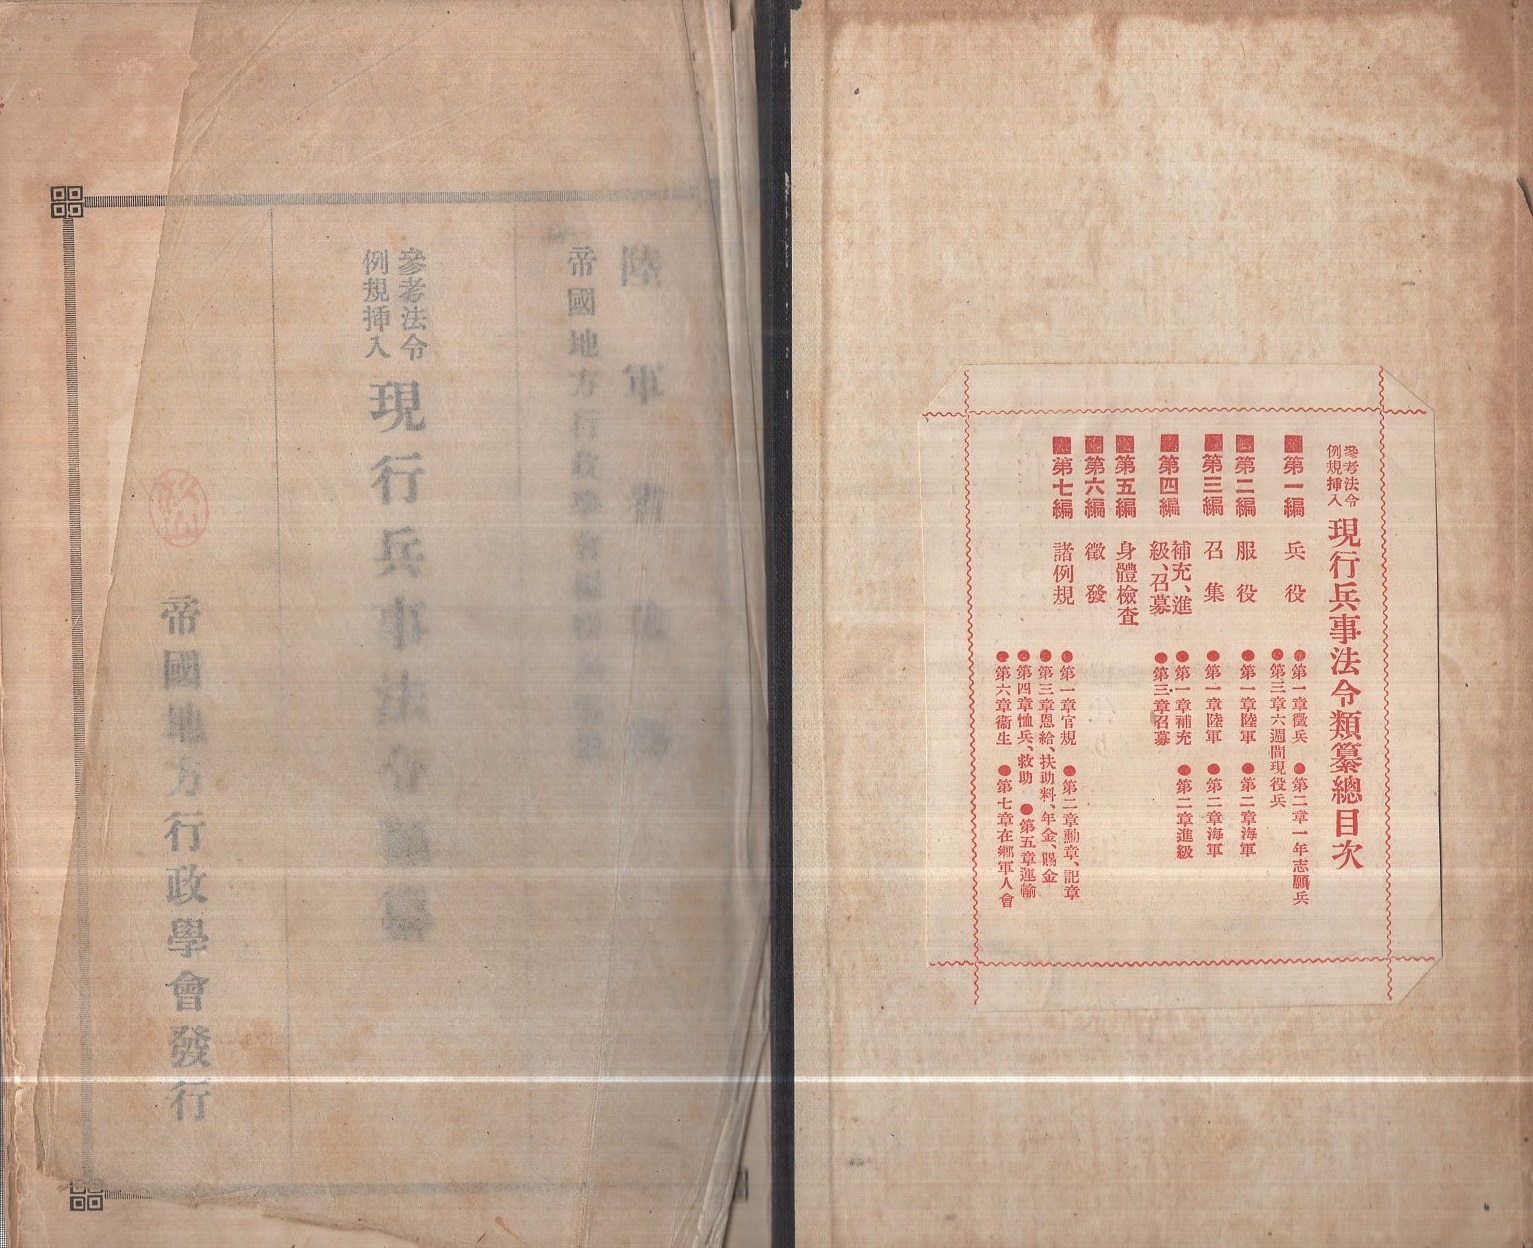 參考法令
例規挿入
現行兵事法令類纂總目次
第一編 兵役
●第一章徵兵 ●第二章一年志願兵
●第三章六週間現役兵
第二編 服役
●第一章陸軍 ●第二章海軍
第三編 召集
●第一章陸軍 ●第二章海軍
第四編 補充、進
級、召募
●第一章補充 ●第二章進級
●第三章召募
第五編 身體檢査
第六編 徵發
第七編 諸例規
●第一章官規 ●第二章勳章、記章
●第三章恩給、扶助料、年金、賜金
●第四章恤兵、救助 ●第五章運輸
●第六章衞生 ●第七章在鄕軍人會
陸軍省
帝國地方行政學會
參考法令
例規挿入
現行兵事法令類纂
帝國地方行政學會發行